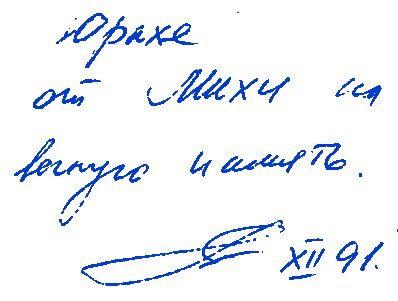 Юрахе
от Михи на
вечную память.
XII 91.